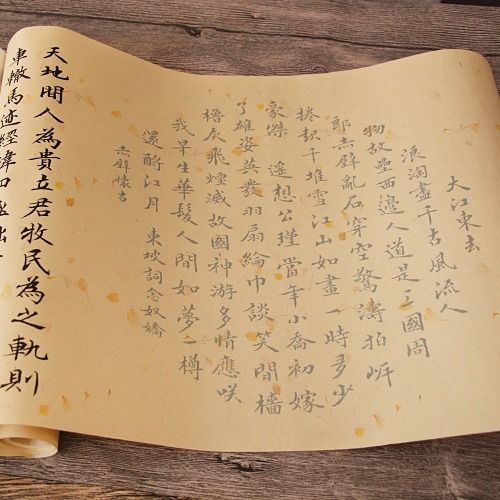 大江東去
浪淘盡千古風流人
物故壘西邊人道是三國周
郎赤壁亂石穿空驚濤拍岸
捲起千堆雪江山如畫一時多少
豪傑 遙想公瑾當年小喬初嫁
了雄姿英發羽扇綸巾談笑間檣
櫓灰飛煙滅故國神游多情應咲
我早生華髮人間如夢一樽
還酹江月 東坡詞念奴嬌
赤壁懷古
天地間人為貴立君牧民為之軌則
車轍馬迹經緯四極